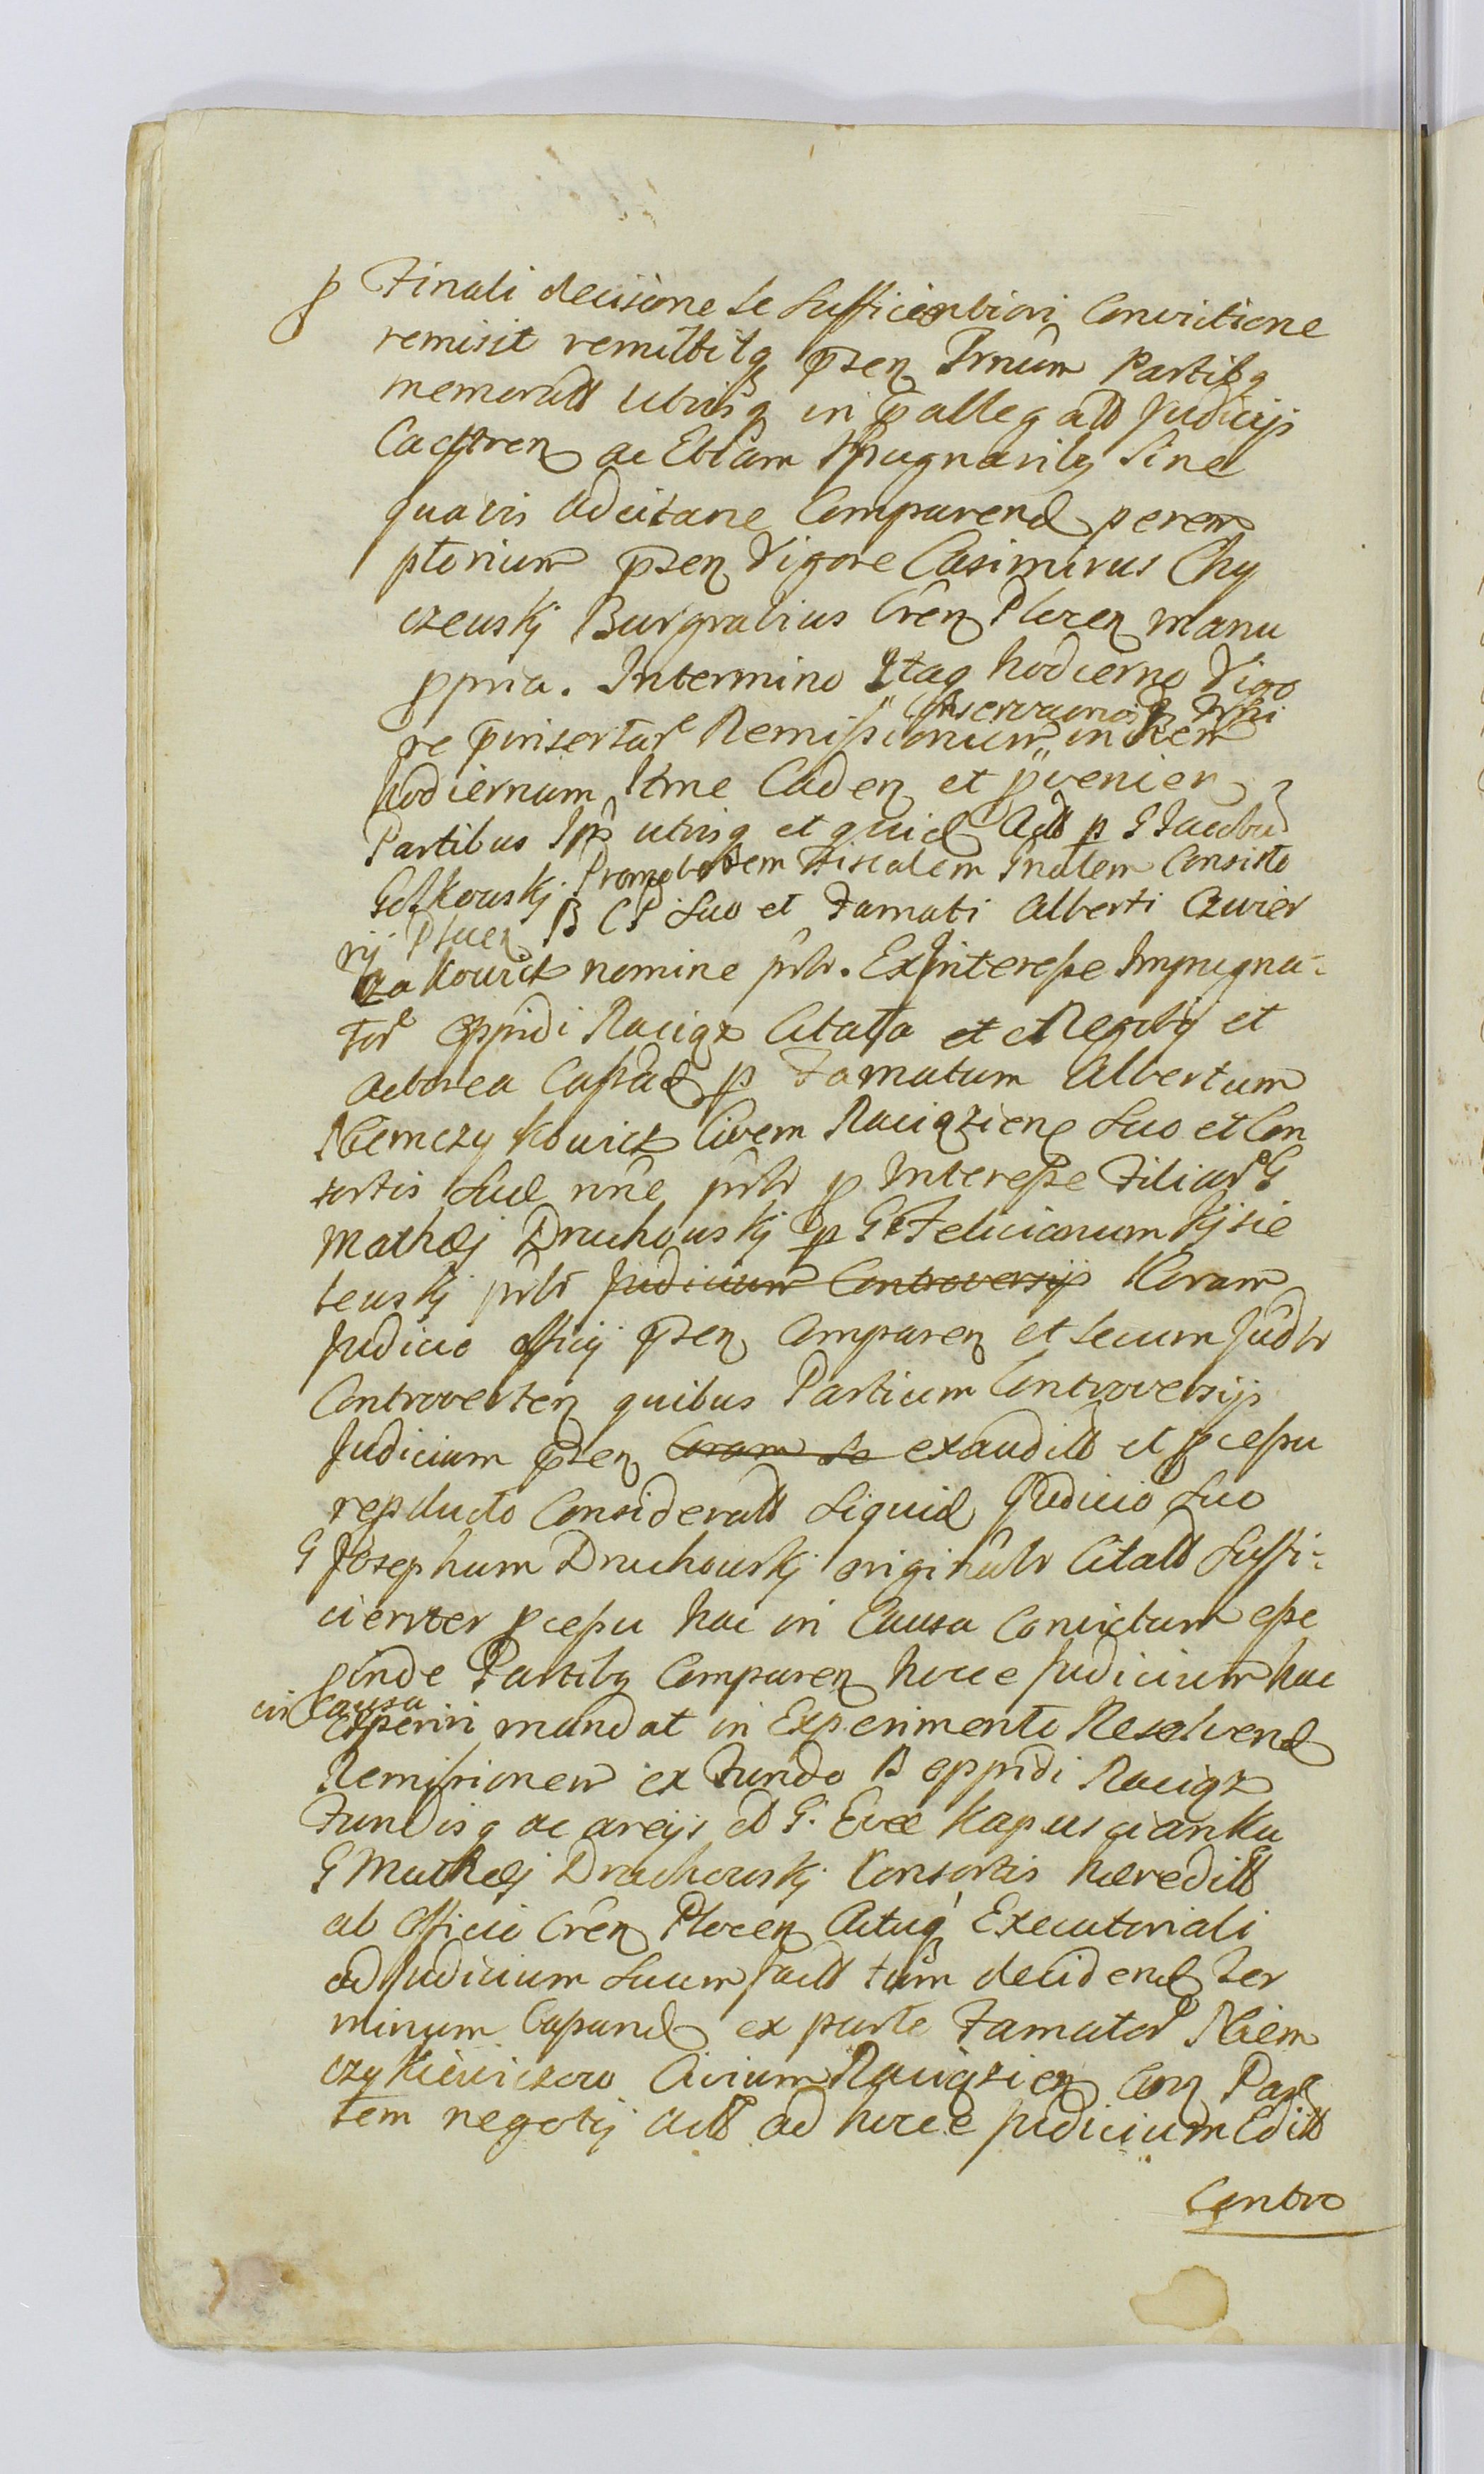 p Finali decisione se sufficientiori Convictione
remisit remittitq pñsen Trnum Partibq
memoratt utrisq in pallegatt Judicijs
Castren ac Etiam sine
quavis adcitaõne Comparend perem
ptorium pñsen Vigore Casimirus Chy
czeuskj Burgrabius Cren Plocen manu
ppria. Intermino Itaq hodierno Vigo
re pinsertar Remissionum in rem
hodiernum Itme Caden et pvenien
Partibus Ips utrisq et quid Act p G Jacobu
Gotkouskj Promotorem Fiscalem Gnalem Consisto
rij Plocen B C P Suo et Famati Alberti
kouicz nomine pntr. Exinteresse Impugna-
tor oppidi Raciąz Citata et et
actorea Capiad p Famatum Albertum
Niemczykouicz Civem Raciązien Suo et Con
sortis Suæ nñe pntr p Interesse Filiar G
Mathæj Druchouskj p G Felicianum Kjsie
leuskj pntr Judicium Controversijs Coram
Judicio officij pñsen Comparen et secum Judtr
Controverten quibus Partium Controversijs
Judicium pñsen Coram se exaudit et pcessu
repducto Consideratt Siquid Judicio Suo
G Josephum Druchouskj originatr Citatt Suffi-
cienter pcessu hac in Causa Convictum esse
pinde Partibq Comparen hocce Judicium hac
in Causa
Experiri mandat in Experimento Resolvend
Remissionem ex Fundo B oppidi Raciąz
Fundisq ac areijs G. Evæ Kapuscianka
G Mathæj Druchouskj Consortis hæreditt
ab Officio Cren Plocen Actuq Executoriali
ad Judicium Suum factt tum decidend Ter
minum Capiand ex parte Famator Niem
czykieuiczow Civium Raciązien Con Par
tem negotij actt ad hocce Judicium Editt
Contro